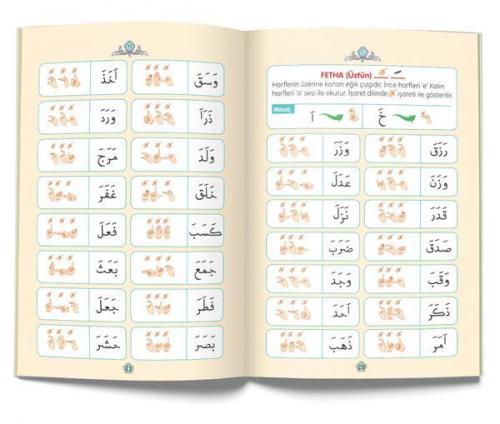 FETHA (Üstün)
Harflerin üzerine konan eğik çizgidir. İnce harfleri 'e' Kalın
harfleri 'a' sesi ile okutur. İşaret dilinde işareti ile gösterilir.
Misal;
اَ خَ
رَزَقَ وَزَرَ
وَزَنَ عَدَلَ
قَدَرَ نَزَلَ
صَدَقَ ضَرَبَ
وَقَبَ وَجَدَ
ذَكَرَ اَحَدَ
اَمَرَ ذَهَبَ
20
وَسَقَ اَخَذَ
ذَرَاَ وَرَدَ
وَلَدَ مَرَجَ
خَلَقَ غَفَرَ
كَسَبَ فَعَلَ
جَمَعَ بَعَثَ
فَطَرَ جَعَلَ
بَصَرَ حَشَرَ
21